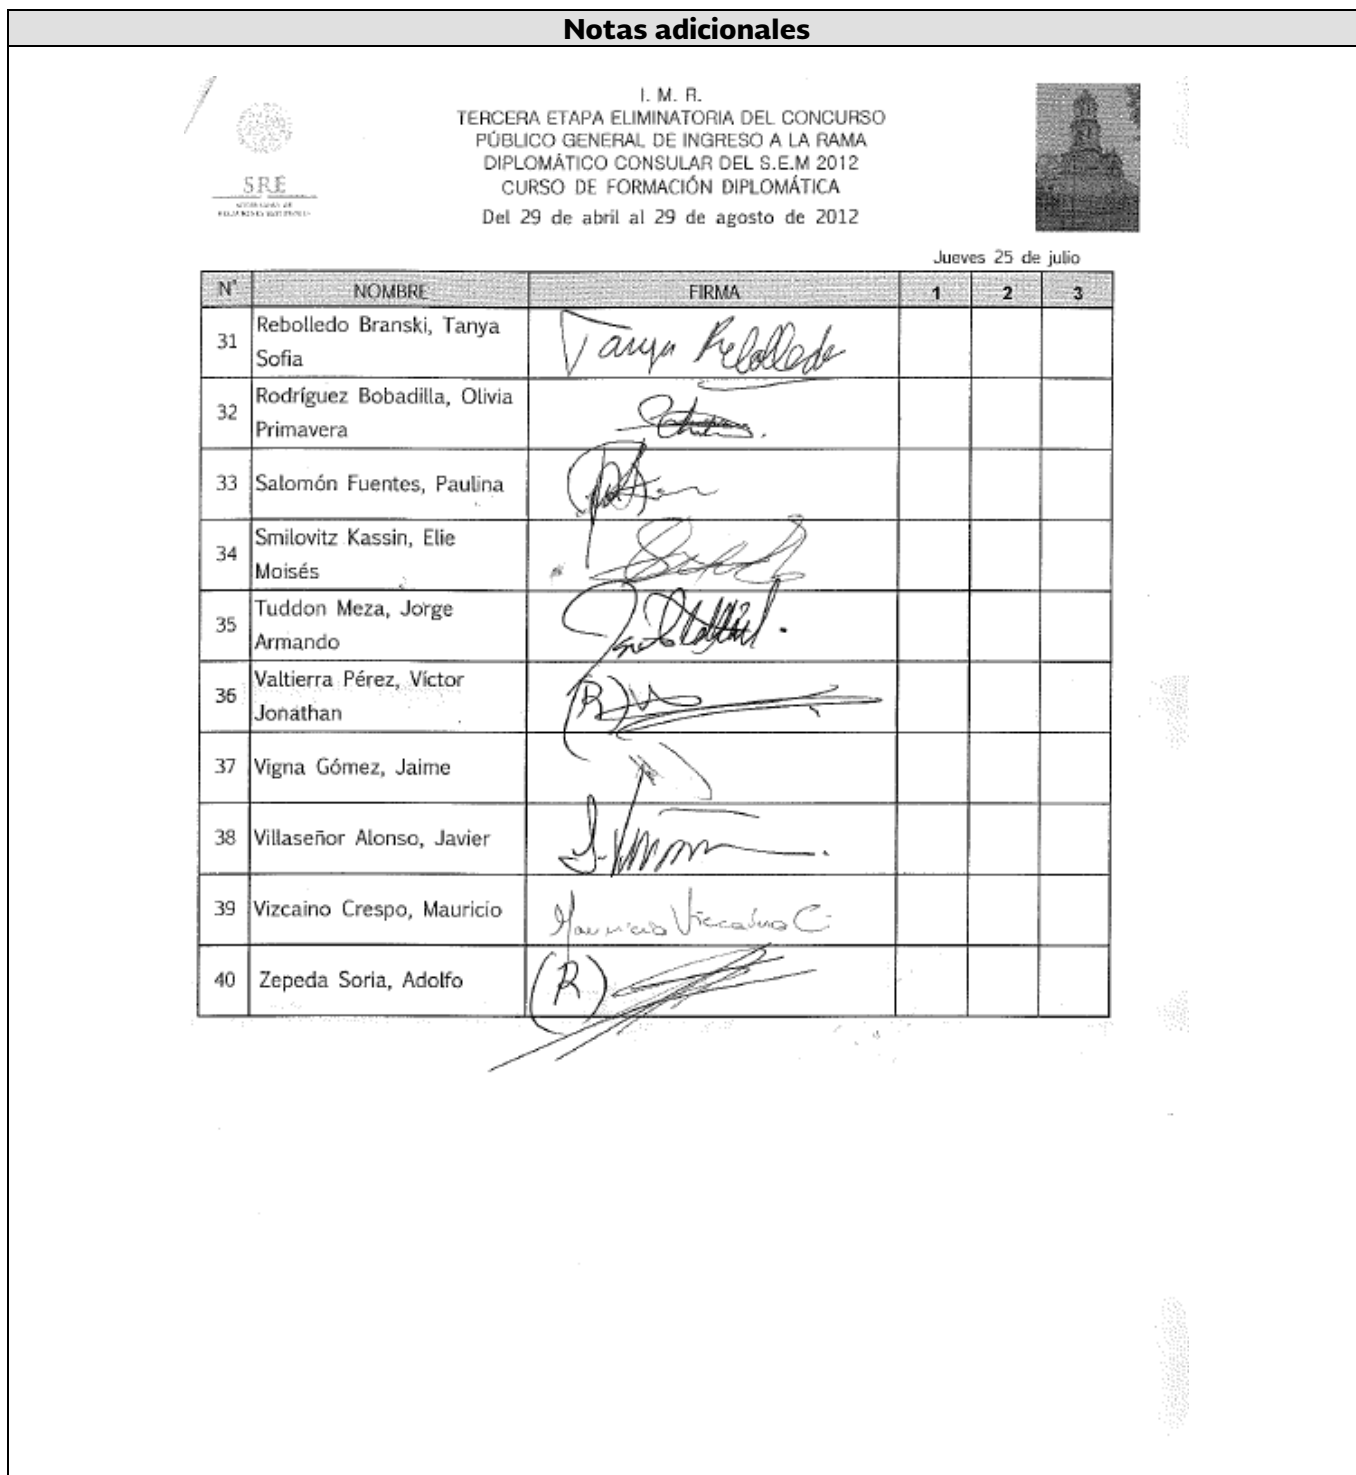 Notas adicionales
I. M. R.
TERCERA ETAPA ELIMINATORIA DEL CONCURSO
PÚBLICO GENERAL DE INGRESO A LA RAMA
DIPLOMÁTICO CONSULAR DEL S.E.M 2012
CURSO DE FORMACIÓN DIPLOMÁTICA
Del 29 de abril al 29 de agosto de 2012
SRE
Jueves 25 de julio
N° NOMBRE FIRMA 1 2 3
31 Rebolledo Branski, Tanya
Sofia
Tanya Rebolledo
32 Rodríguez Bobadilla, Olivia
Primavera
33 Salomón Fuentes, Paulina
34 Smilovitz Kassin, Elie
Moisés
35 Tuddon Meza, Jorge
Armando
36 Valtierra Pérez, Víctor
Jonathan
(R)
37 Vigna Gómez, Jaime
38 Villaseñor Alonso, Javier
39 Vizcaino Crespo, Mauricio Mauricio Vizcaino C.
40 Zepeda Soria, Adolfo (R)